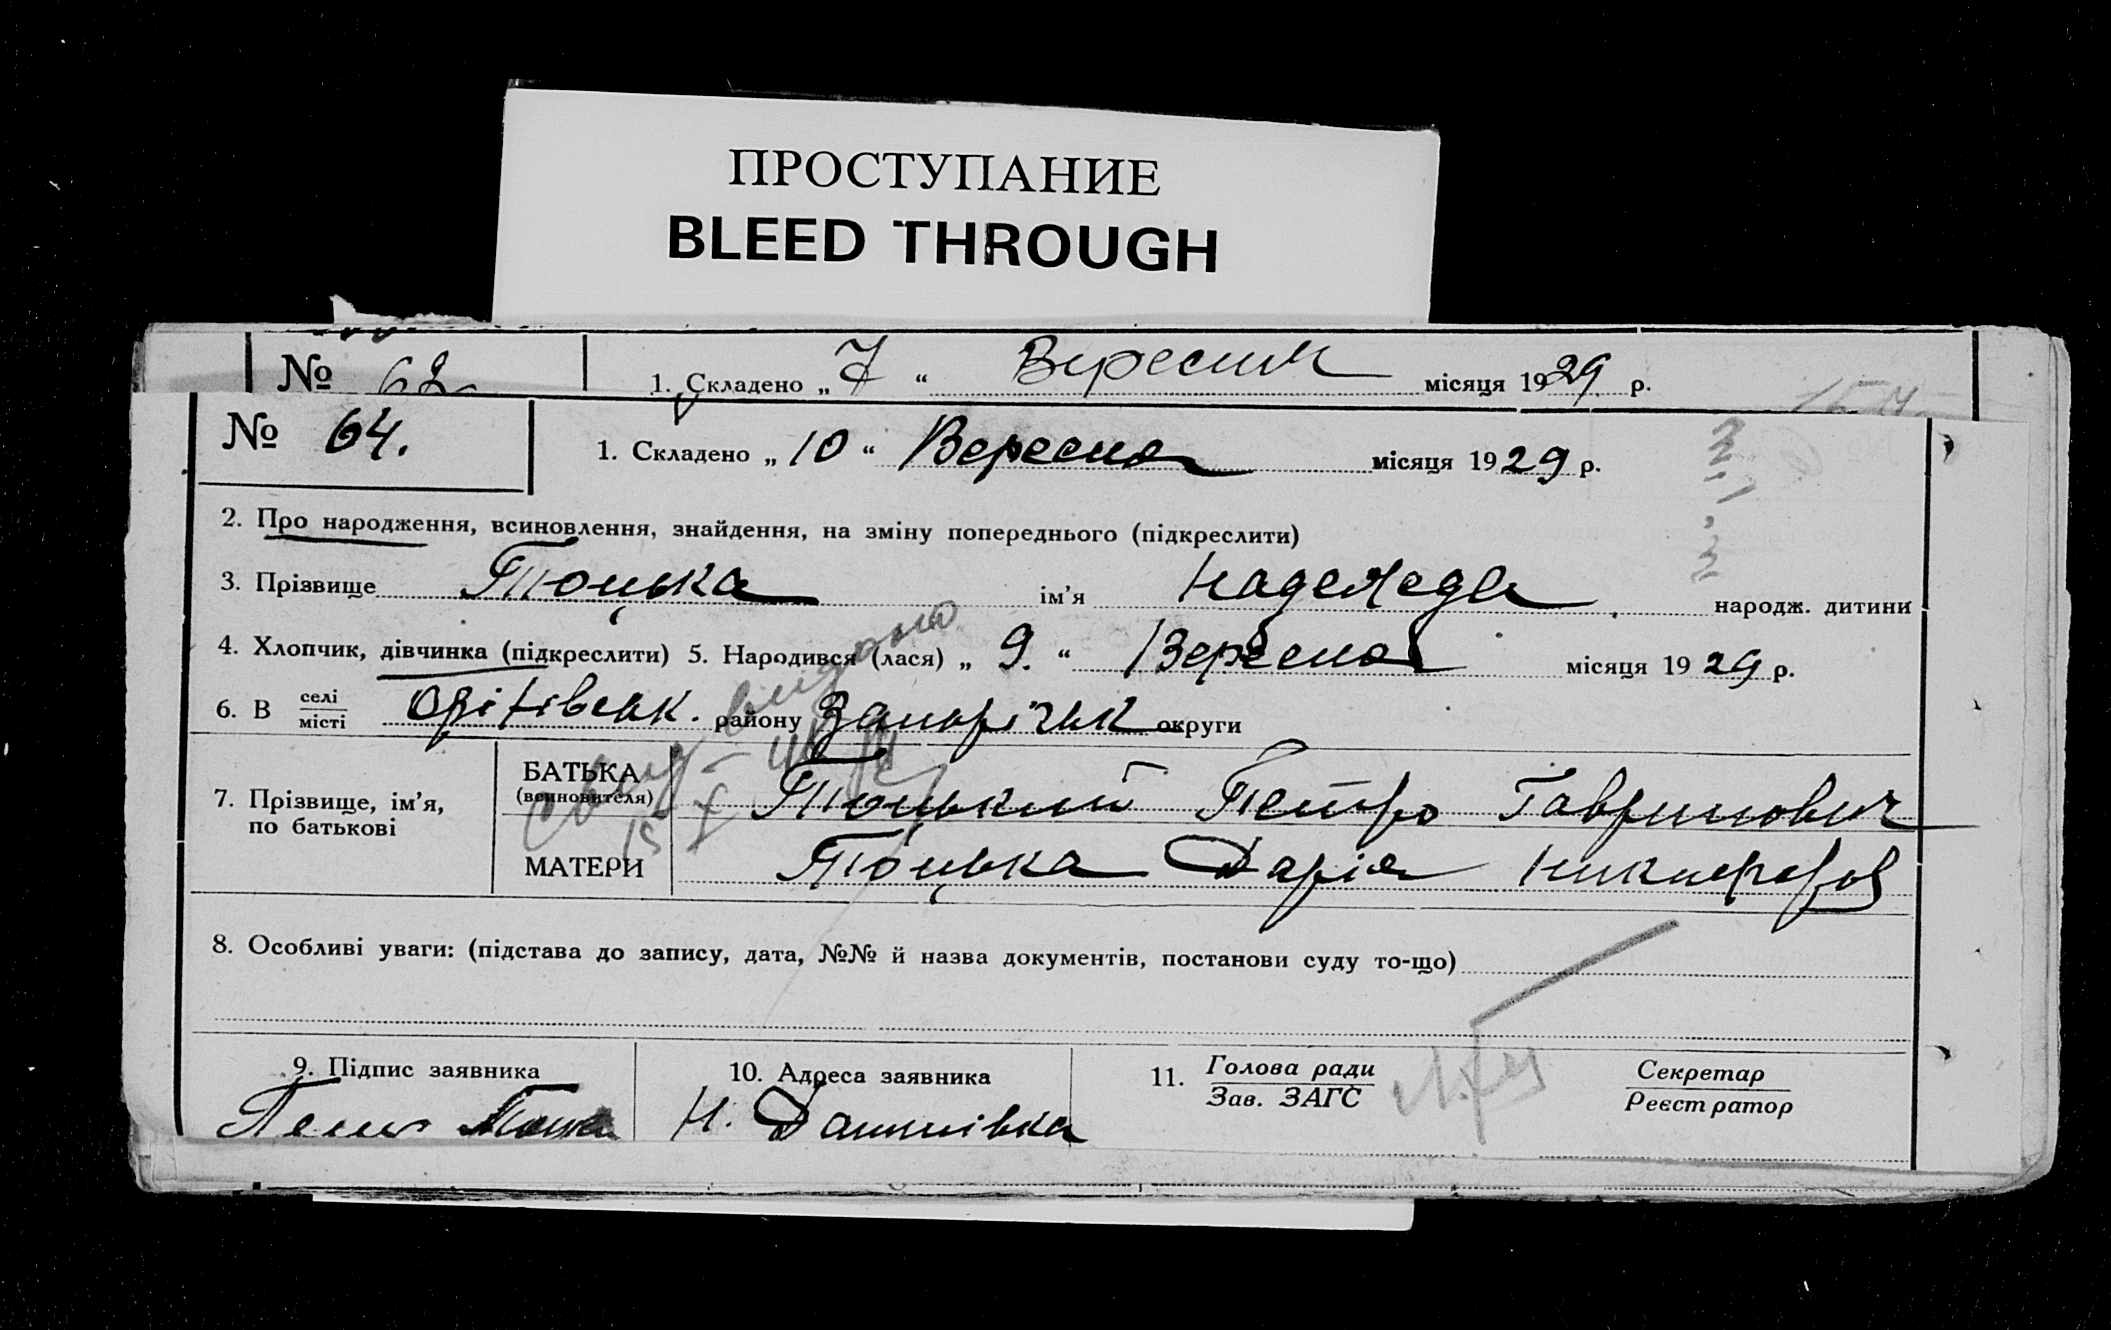 ПРОСТУПАНИЕ
BLEED THROUGH
№ 62 1. Складено „ 7 “ Вересня місяця 1929 р.
№ 64. 1. Складено „ 10 “ Вересня місяця 1929 р.
2. Про народження, всиновлення, знайдення, на зміну попереднього (підкреслити)
3. Прізвище Тоцька ім’я Надежда народж. дитини
4. Хлопчик, дівчинка (підкреслити) 5. Народився (лася) „ 9. “ Вересня місяця 1929 р.
6. В селі місті Оріхівськ. району Запоріжськ округи
7. Прізвище, ім’я, по батькові
БАТЬКА (всиновителя) Тоцький Петро Гаврилович
МАТЕРИ Тоцька Дарія
8. Особливі уваги: (підстава до запису, дата, №№ й назва документів, постанови суду то-що)
9. Підпис заявника 10. Адреса заявника 11. Голова ради Зав. ЗАГС Секретар Реєстратор
Н. Данилівка